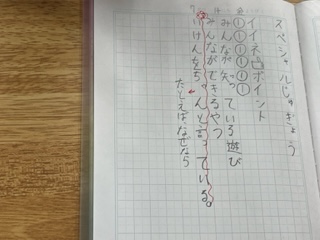 スペシャルじゅぎょう
イイネポイント
①①①①①
みんなが知っている遊び
みんなができるやつ
いけんをちゃんと言っている。
たとえば、なぜなら